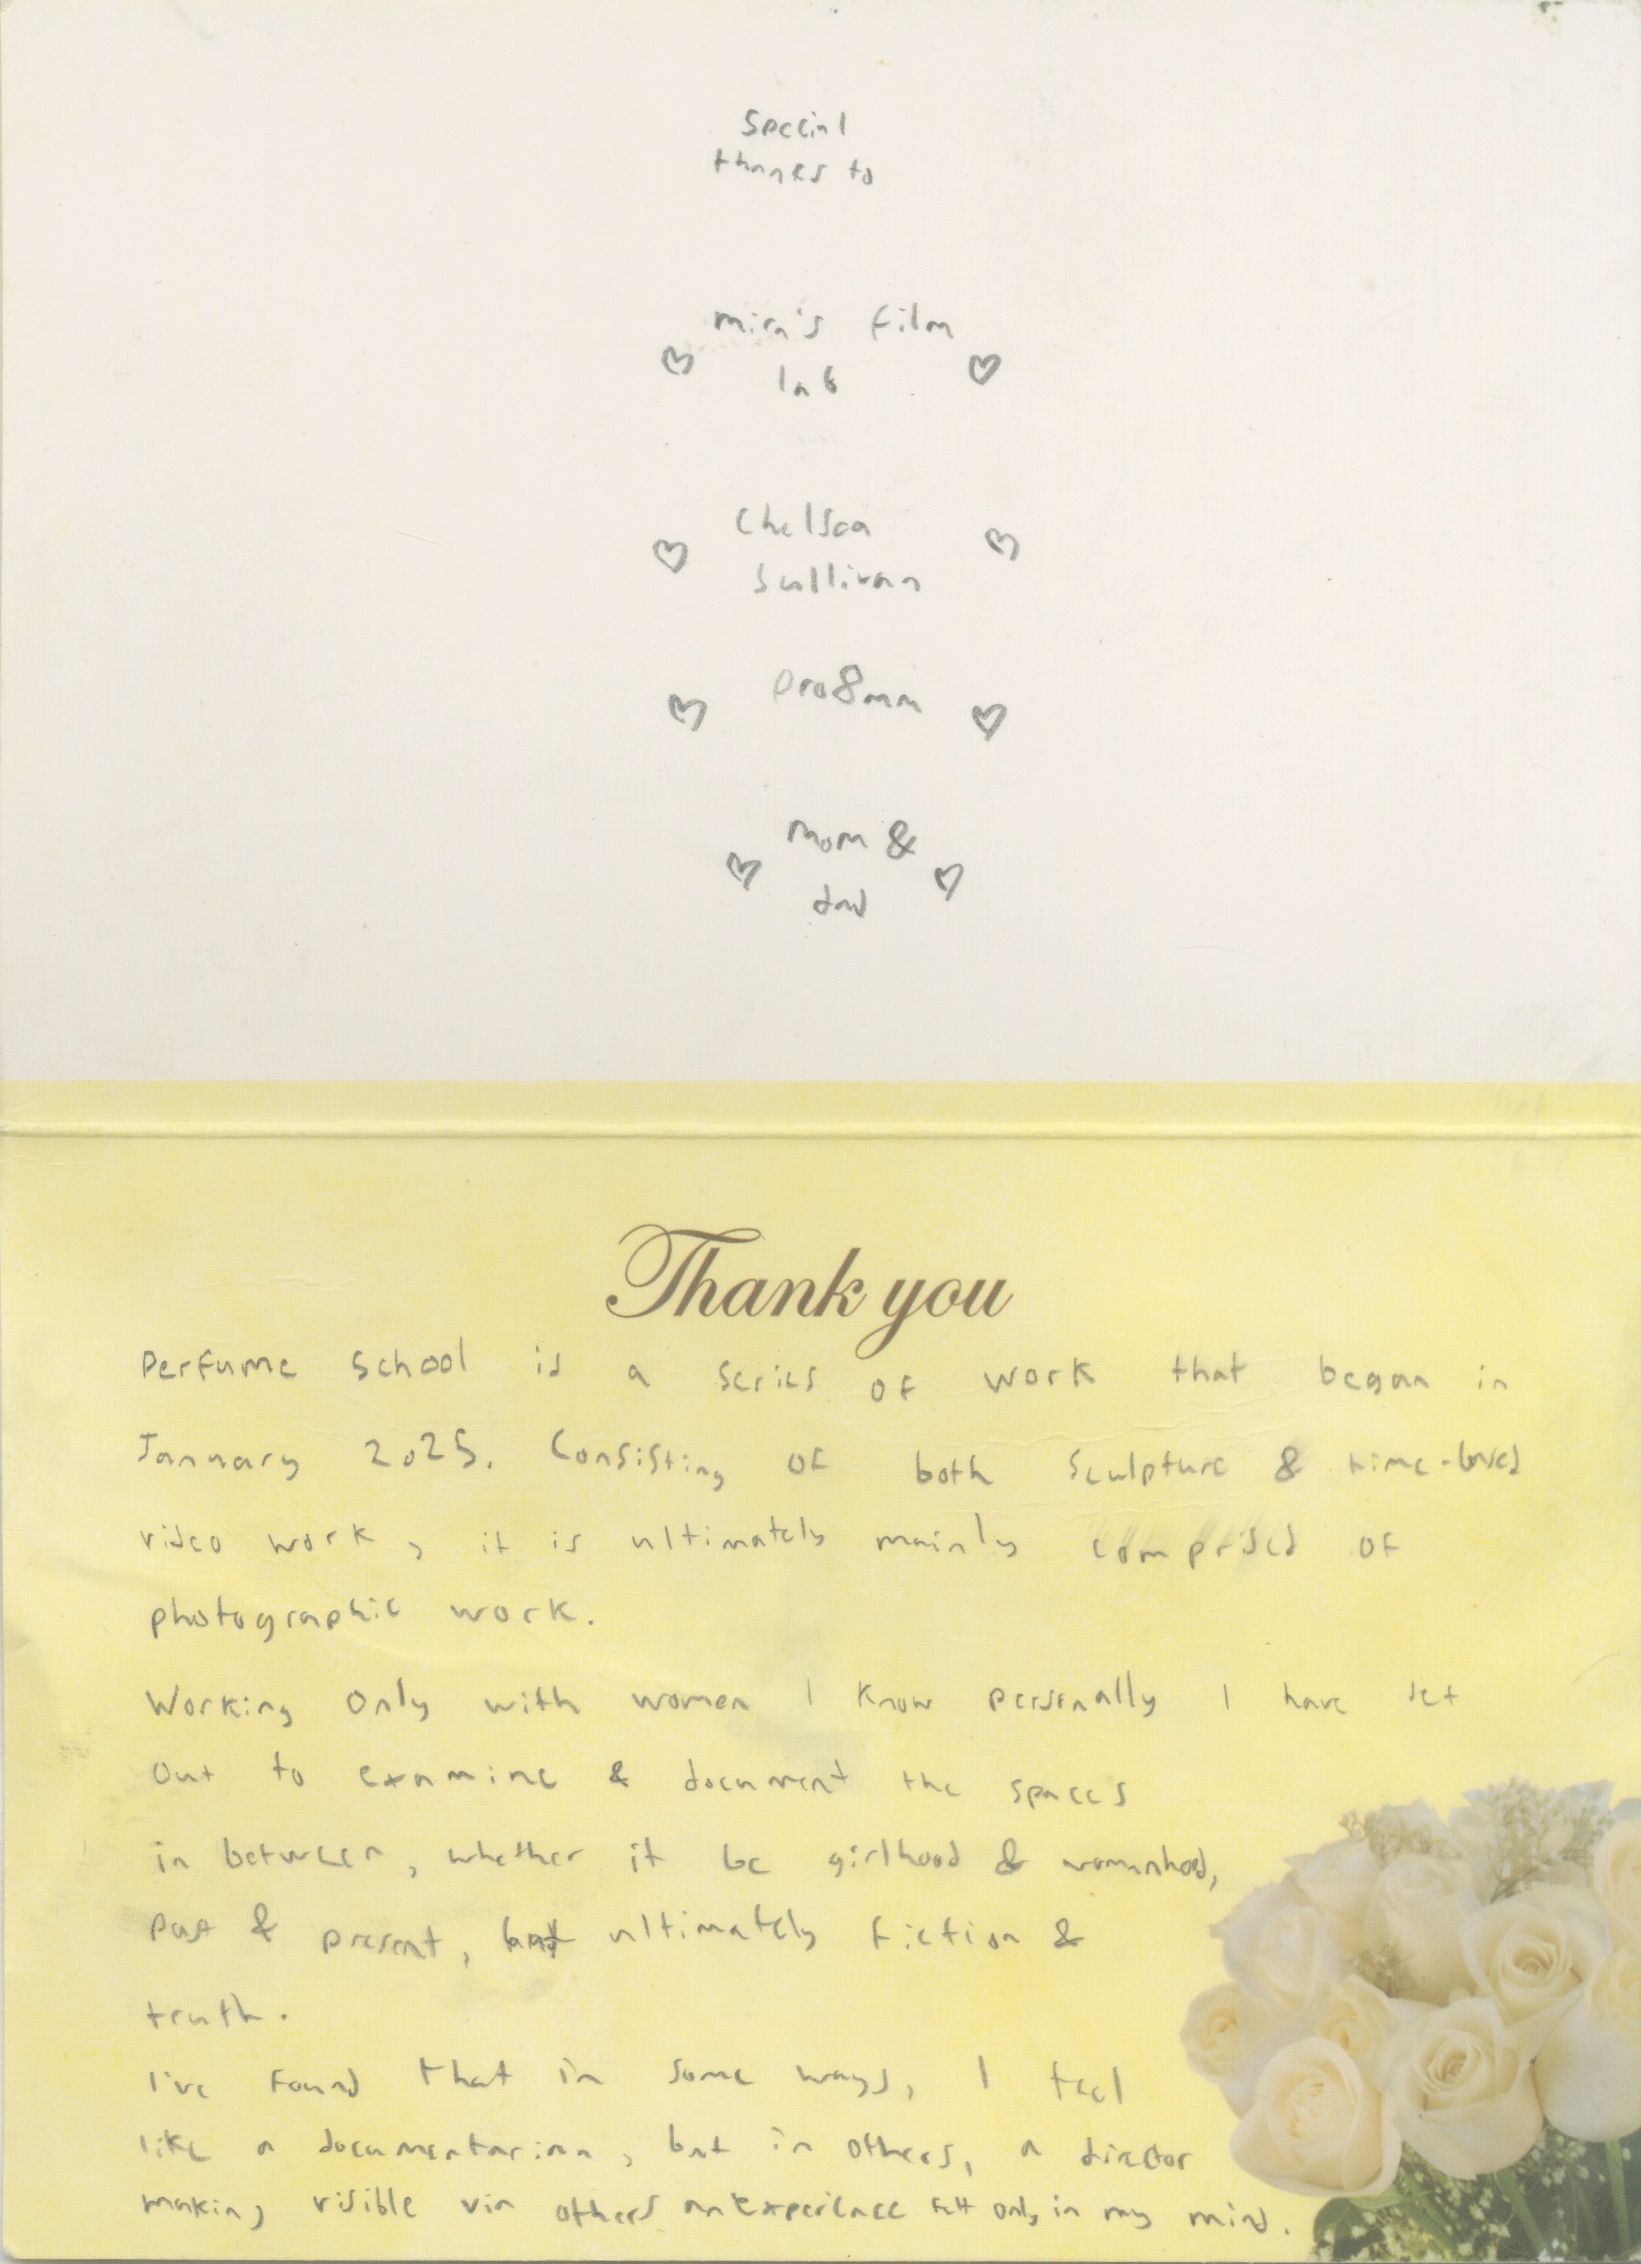 Special
thanks to
mira's film
lab
Chelsea
Sullivan
pro8mm
mom &
dad
Thank you
Perfume School is a series of work that began in
January 2025. Consisting of both sculpture & time-based
video work, it is ultimately mainly comprised of
photographic work.
Working only with women I know personally I have set
out to examine & document the spaces
in between, whether it be girlhood & womanhood,
past & present, but ultimately fiction &
truth.
I've found that in some ways, I feel
like a documentarian, but in others, a director
making visible via others an experience felt only in my mind.